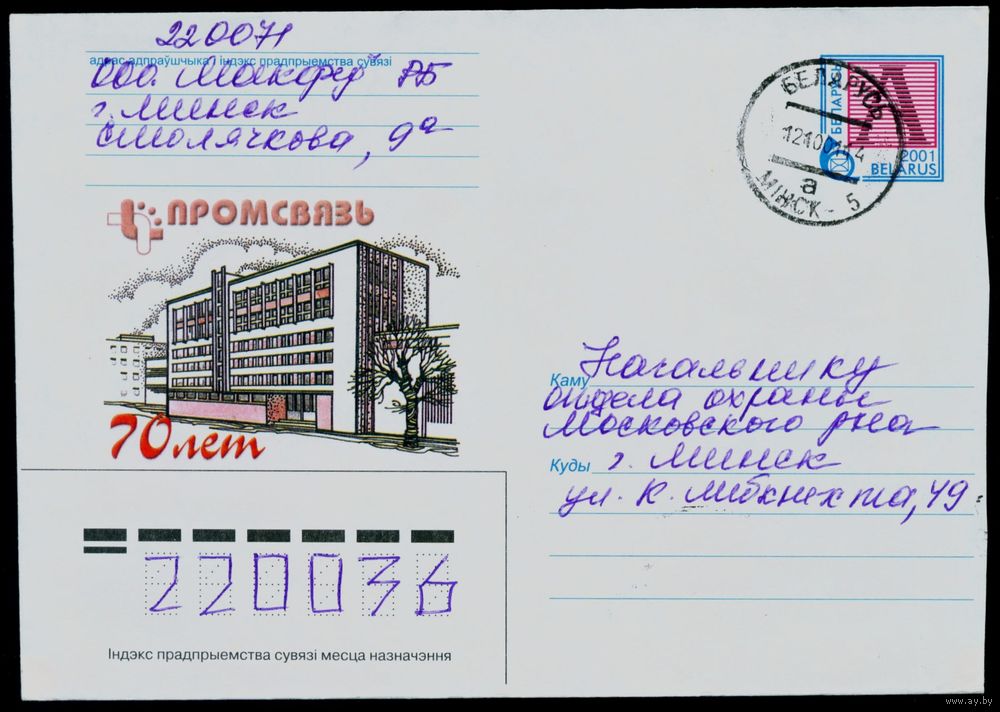 220071
адрас адпраўшчыка і індэкс прадпрыемства сувязі
ООО. РБ
г. Минск
Смолячкова, 9а
ПРОМСВЯЗЬ
70 лет
БЕЛАРУСЬ
МІНСК - 5
а
БЕЛАРУСЬ
A
2001
BELARUS
Каму Начальнику
отдела охраны
Московского р-на
Куды г. Минск
ул. К. Либкнехта, 49
220036
Індэкс прадпрыемства сувязі месца назначэння
www.ay.by